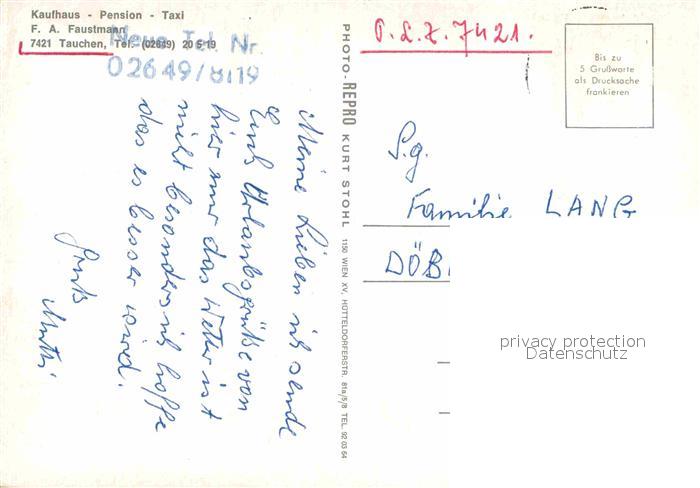 Kaufhaus - Pension - Taxi
F. A. Faustmann
7421 Tauchen, Tel. (02649) 20 5 19
Neue Tel. Nr.
02649/8119
Meine Lieben ich sende
Euch Urlaubsgrüße von
hier nur das Wetter ist
nicht besonders ich hoffe
das es besser wird.
Gruß
Mutti
PHOTO-REPRO KURT STOHL 1150 WIEN XV, HÜTTELDORFERSTR. 81a/5/8 TEL. 92 03 64
P.L.Z. 7421.
Bis zu
5 Grußworte
als Drucksache
frankieren
S.g.
Familie LANG
DÖB
privacy protection
Datenschutz